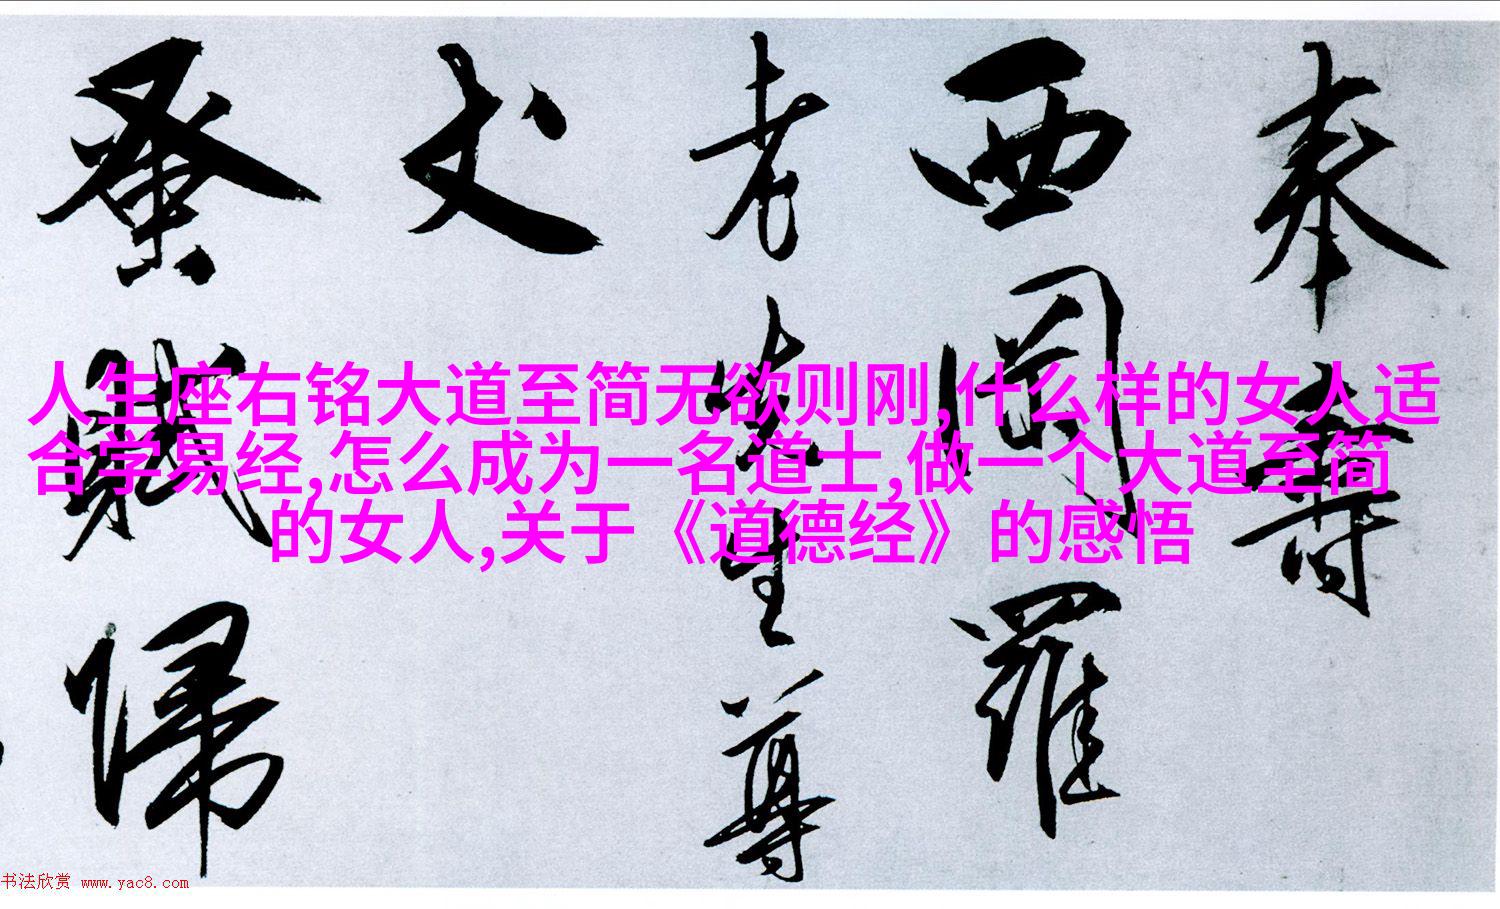 奉壽
西岡羅
老先生尊
丈
蚤歲歸
人生座右铭大道至简无欲则刚,什么样的女人适
合学易经,怎么成为一名道士,做一个大道至简
的女人,关于《道德经》的感悟
书法欣赏 www.yac8.com